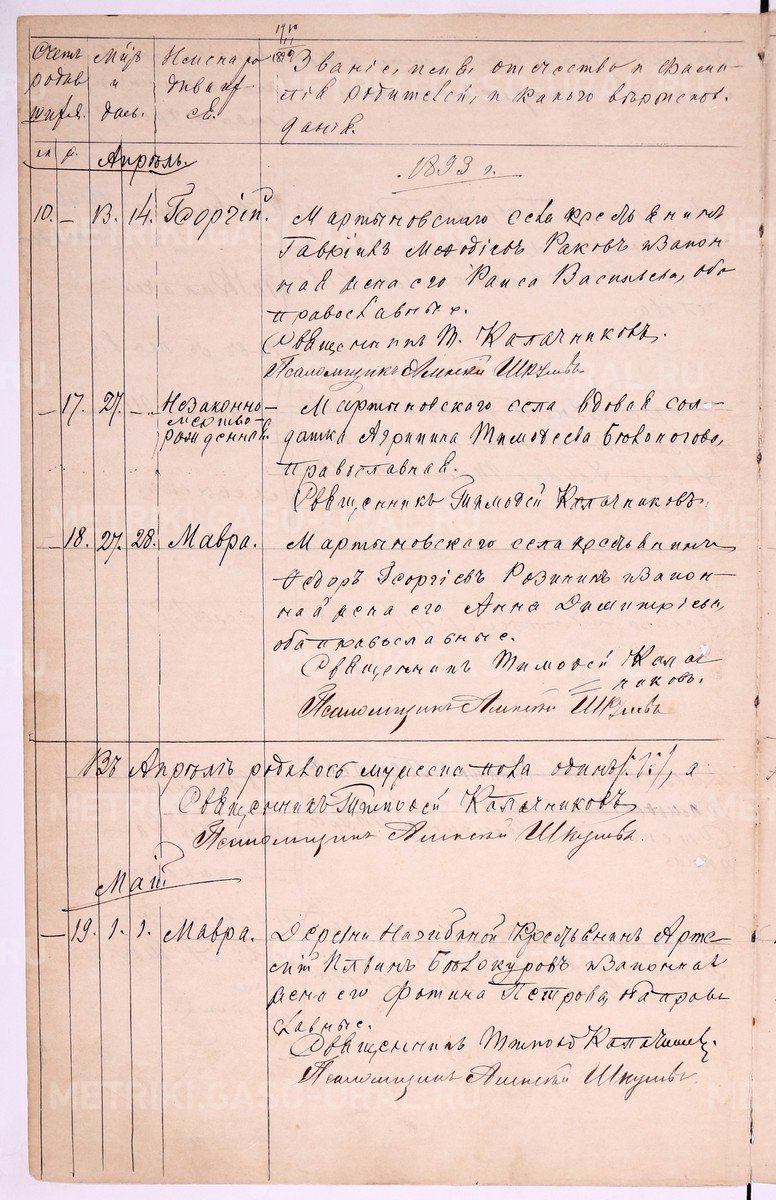 Счетъ родив Мѣсяцъ и день. Имена родив
Званіе, имя, отечество и фами-
лія родителей, и какого вѣроиспов.
данія.
м. ж. Апрѣль. 1893 г.
10. – 13. 14. Георгій. Мартыновскаго села крестьянинъ
Гавріилъ Меѳодіевъ Раковъ и закон-
ная жена его Раиса Васильева, оба
православные.
Священникъ Т. Калачниковъ.
Псаломщикъ Алексѣй
– 17. 27. – Незаконно- Мартыновскаго села вдовая сол-
мертво-
рожденная. датка Агрипина Тимоѳеева Бѣлоногова,
православная.
Священникъ Тимоѳей Калачниковъ.
– 18. 27. 28. Мавра. Мартыновскаго села крестьянинъ
Ѳедоръ Георгіевъ и закон-
ная жена его Анна Димитріева,
оба православные.
Священникъ Тимоѳей Калач
никовъ.
Псаломщикъ Алексѣй
Въ Апрѣлѣ родилось мужеска пола одинъ /:1:/, а
Священникъ Тимоѳей Калачниковъ
Псаломщикъ Алексѣй
Май
– 19. 1. 1. Мавра. Деревни крестьянинъ Арте-
мій Бѣлокуровъ и законная
жена его Фотина Петрова, оба право
славные.
Священникъ Тимоѳей
Псаломщикъ Алексѣй
METRIKI.GASO-URAL.RU